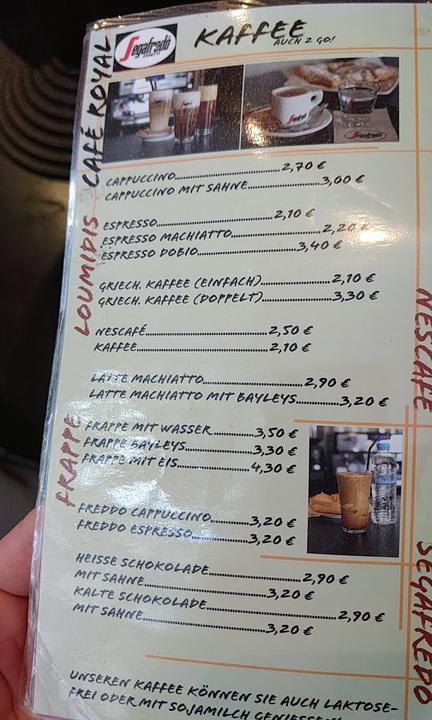 Segafredo
KAFFEE
AUCH 2 GO!
CAFÉ ROYAL
CAPPUCCINO 2,70 €
CAPPUCCINO MIT SAHNE 3,00 €
ESPRESSO 2,10 €
ESPRESSO MACHIATTO 2,20 €
ESPRESSO DOBIO 3,40 €
LOUMIDIS
GRIECH. KAFFEE (EINFACH) 2,10 €
GRIECH. KAFFEE (DOPPELT) 3,30 €
NESCAFÉ 2,50 €
KAFFEE 2,10 €
LATTE MACHIATTO 2,90 €
LATTE MACHIATTO MIT BAYLEYS 3,20 €
FRAPPE
FRAPPE MIT WASSER 3,50 €
FRAPPE BAYLEYS 3,30 €
FRAPPE MIT EIS 4,30 €
FREDDO CAPPUCCINO 3,20 €
FREDDO ESPRESSO 3,20 €
HEISSE SCHOKOLADE 2,90 €
MIT SAHNE 3,20 €
KALTE SCHOKOLADE 2,90 €
MIT SAHNE 3,20 €
UNSEREN KAFFEE KÖNNEN SIE AUCH LAKTOSE-
FREI ODER MIT SOJAMILCH GENIESSEN
NESCAFÉ
SEGAFREDO